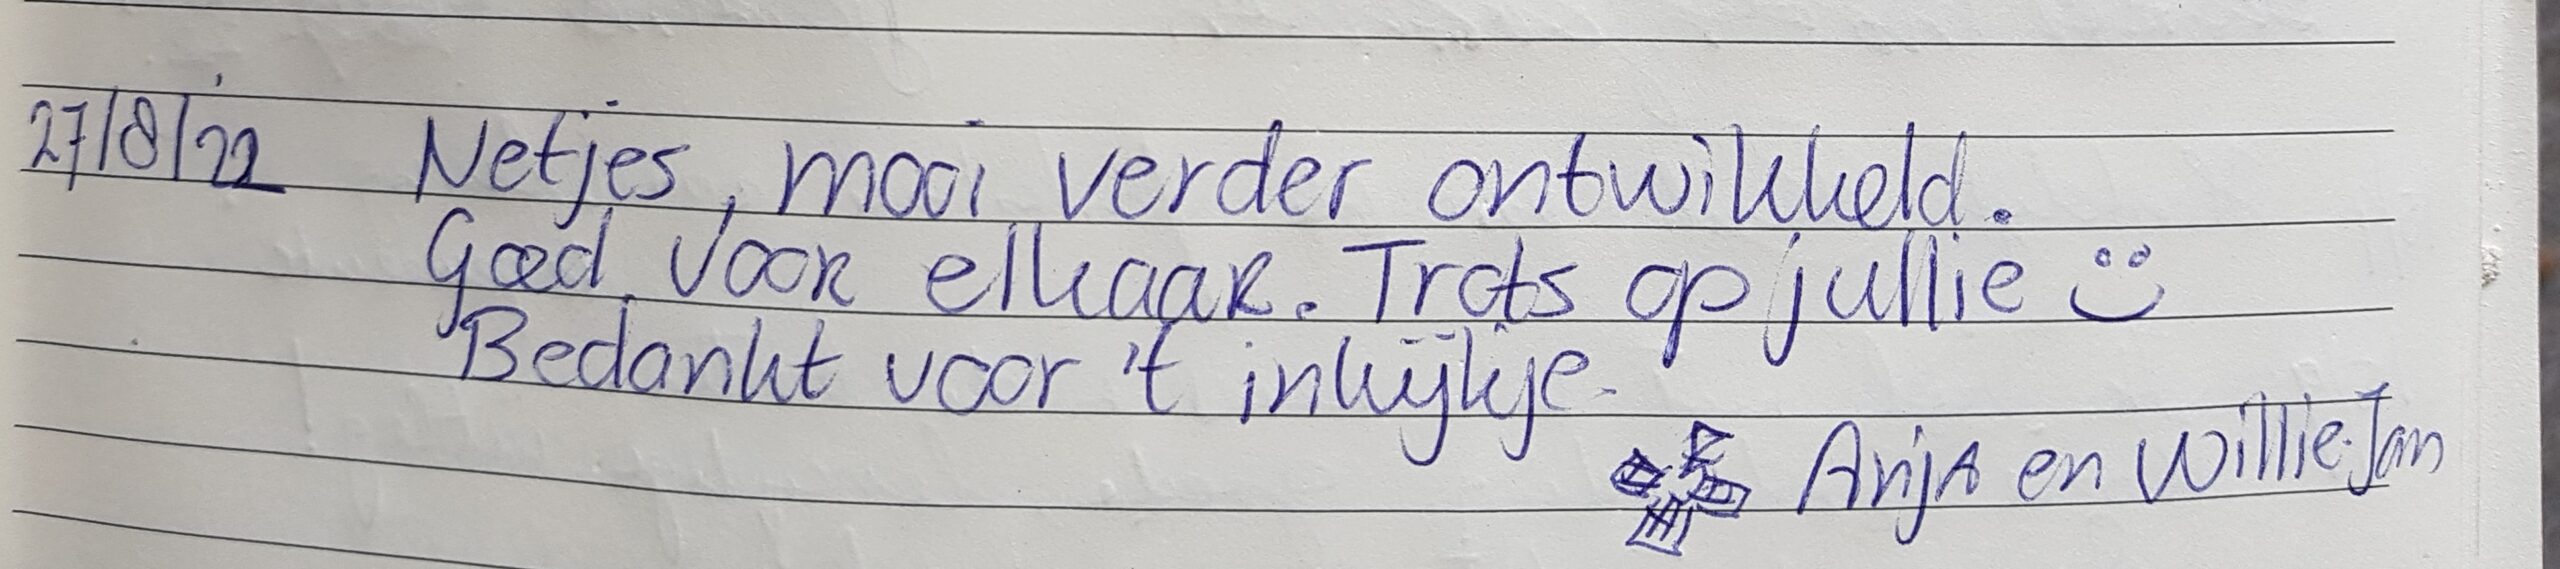 27/8/'22 Netjes, mooi verder ontwikkeld.
Goed voor elkaar. Trots op jullie
Bedankt voor 't inkijkje.
Anja en Willie-Jan